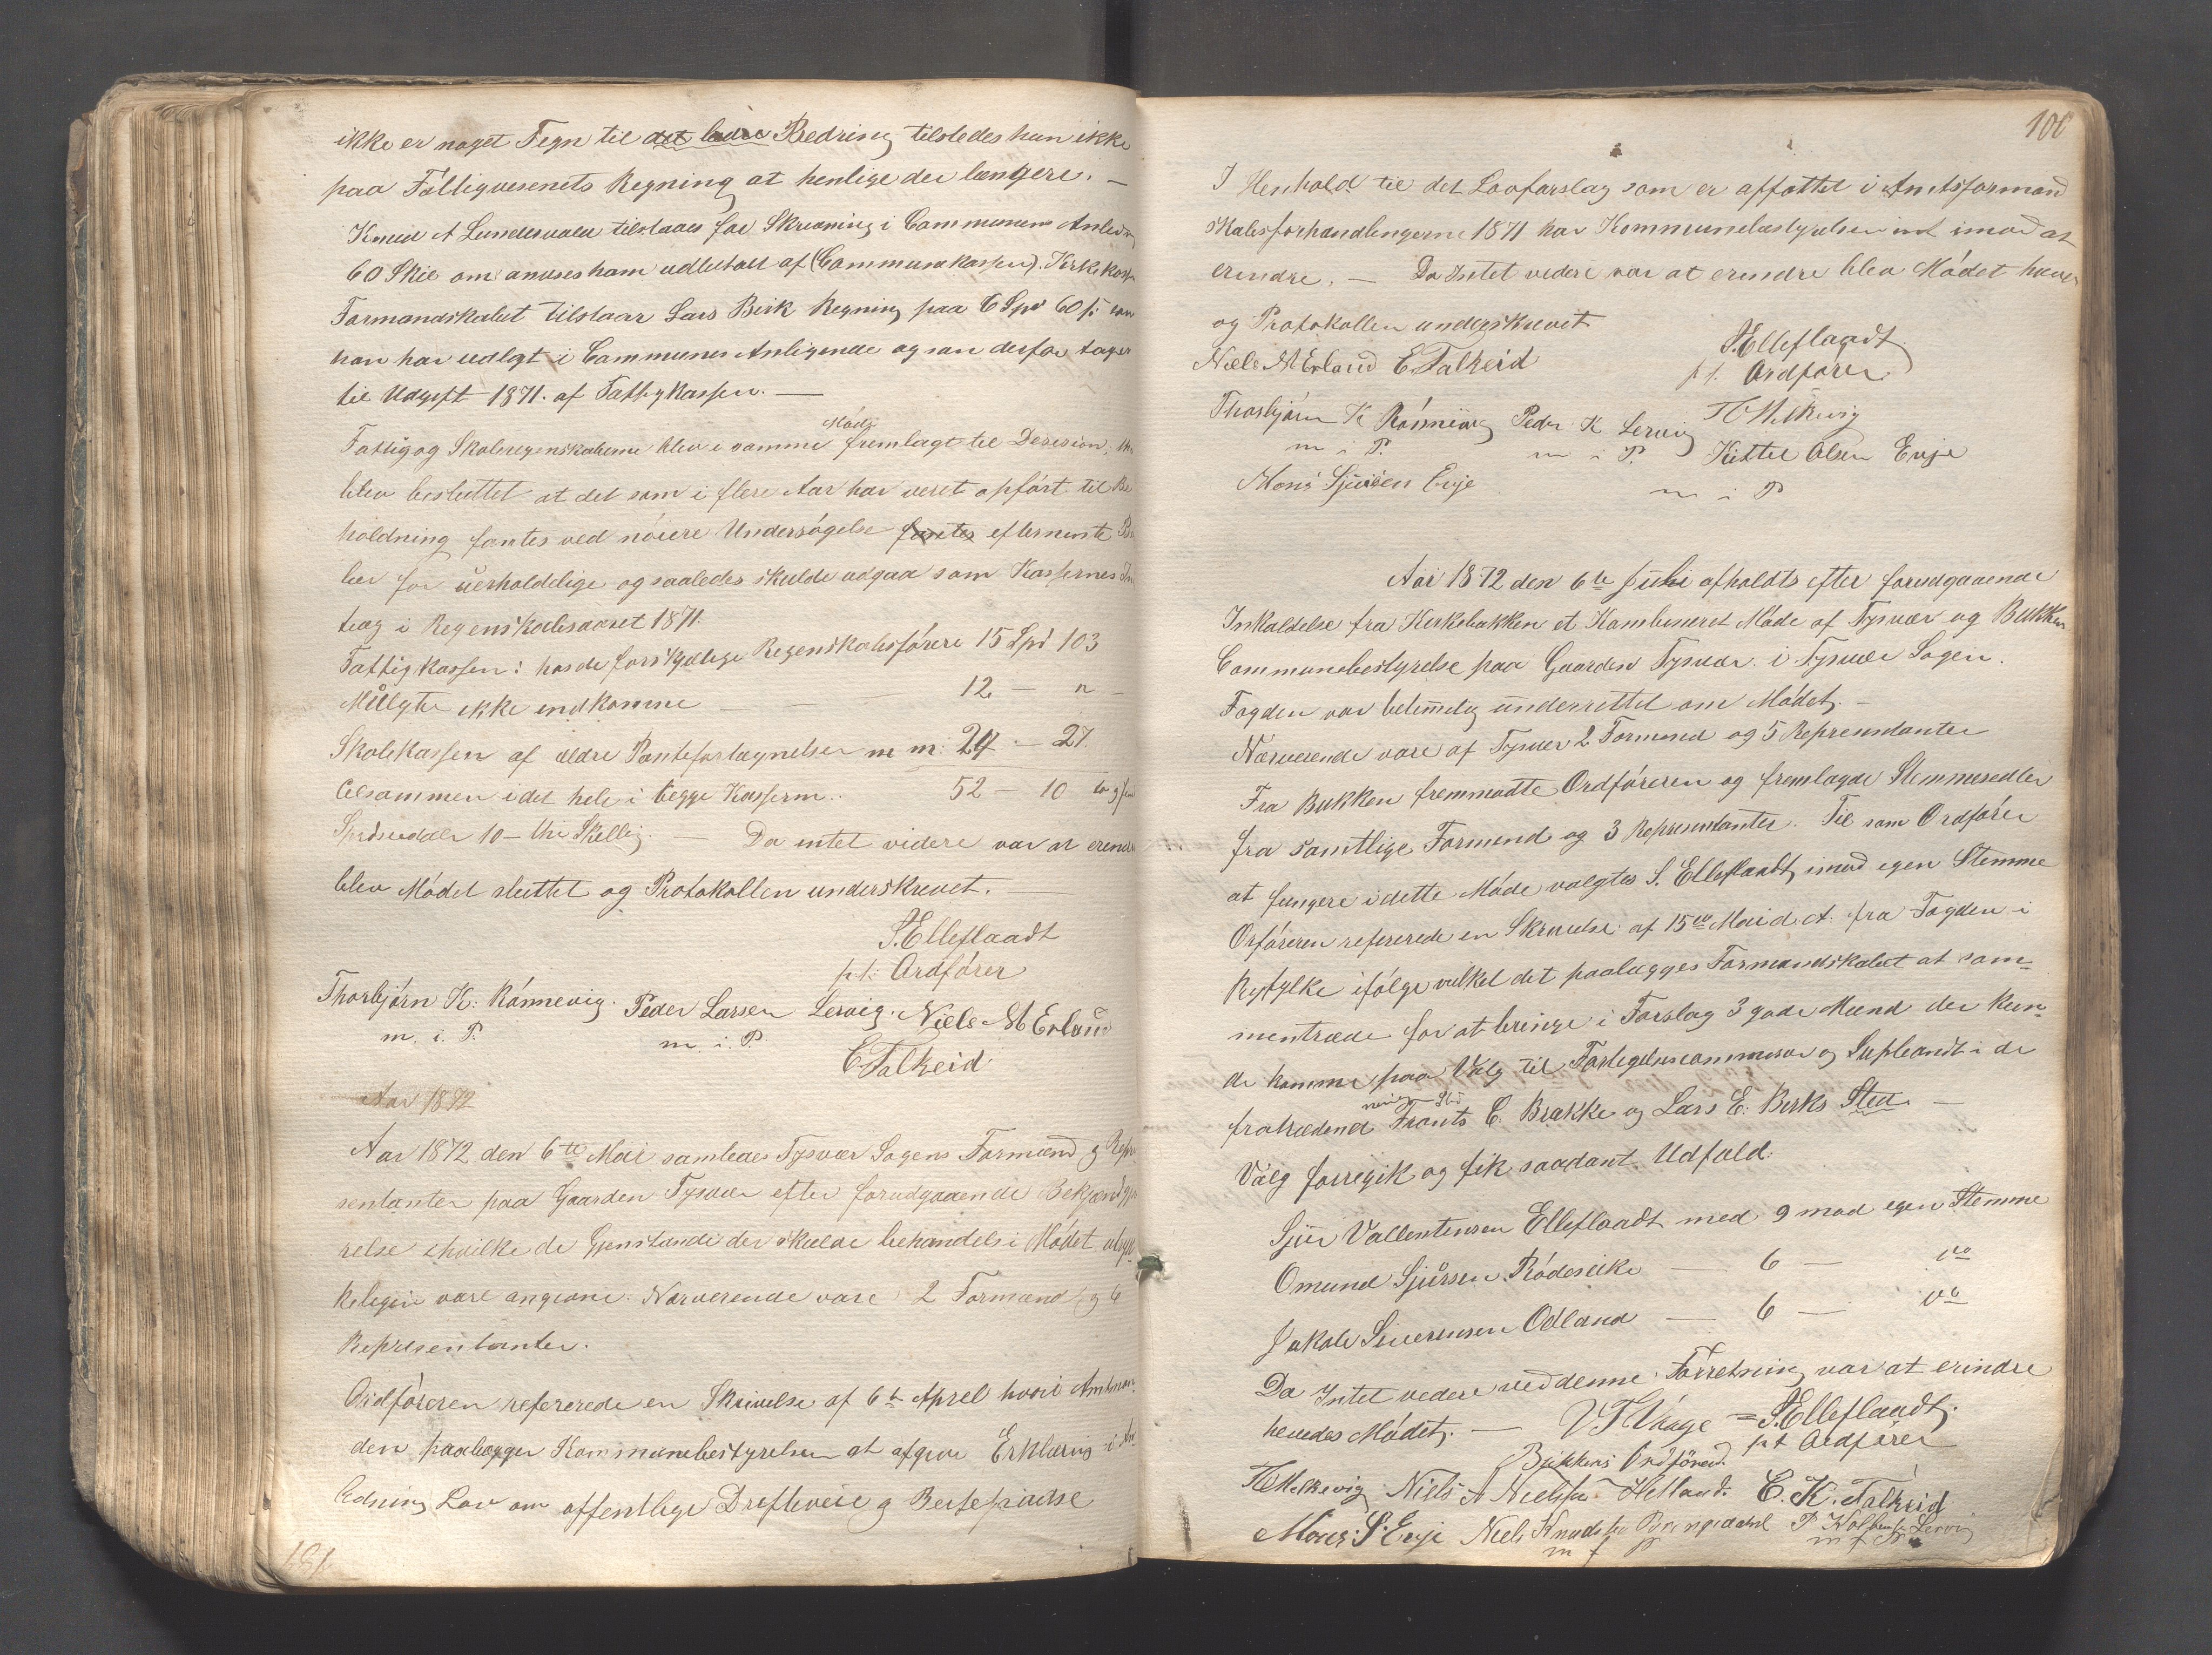 ikke er noget Tegn til det bedre Bedring tilstedes hun ikke
paa Fattigvesenets Regning at henlige der længere. —
Knud A Lundesvold tilstaaes for Skrivning i Communens Anledn
60 Skil om ansees ham udbetalt af (Communekassen). Kirkekass
Formandskabet tilstaar Lars Birk Regning paa 6 Spd 60 s som
han har udlagt i Communes Anligende og som derfor tages
til Udgift 1871. af Fattigkassen. —
Møde
Fattig og Skoleregnskaberne blev i samme fremlagt til Decision,
blev besluttet at det som i flere Aar har veret opført til Be
holdning fantes ved nøiere Undersøgelse fantes efternevnte Be
ler for uerholdelige og saaledes skulde udgaa som Kassernes In
tæg i Regenskabsaaret 1871.
Fattigkassen: hos de forskjælige Regenskabsførere 15 Spd 103
Mulgter ikke indkomne — 12 — " —
Skolekassen af ældre Panteforlægnelser m m: 24 — 27
Alsammen i det hele i begge Kasserne. 52 — 10 to og fem
Spedsiedaler 10 — thi Skilling. — Da intet videre var at erend
blev Mødet sluttet og Protokollen underskrevet.
S. Elleflaadt
p.t. Ordfører
Thorbjørn K. Rønnevig. Peder Larsen Lervig. Niels M Erland
m. i. P. m. i. P.
E Falkeid
Aar 1872
Aar 1872 den 6te Mai samledes Tysvær Sogens Formænd og Repr
sentanter paa Gaarden Tysvær efter forudgaaende Bekjendtgjø
relse i hvilke de Gjenstande der skulde behandles i Mødet udtryk
keligen vare angivne. Nærverende vare 2 Formænd og 6
Representanter.
Ordføreren refererede en Skrivelse af 6te Aprel hvori Amtman
den paalægger Kommunebestyrelsen at afgive Erklæring i An
ledning Lov om offentlige Drifteveie og Beitepladse
100
I Henhold til det Lovforslag som er affattet i Amtsformand
skabsforhandlingerne 1871 har Kommunebestyrelsen int imod at
erindre. — Da Intet videre var at erindre blev Mødet hæve
og Protokollen underskrevet
S. Elleflaadt
p t. Ordfører
Niels M Erland E. Falkeid
Thorbjørn K Rønnevig Peder K Lervig
m i P. m i P.
Kittel Olsen Erje
m i P
Mons Sjursen Erje
Aar 1872 den 6te Juli afholdts efter forudgaaende
Inkaldelse fra Kirkebakken et Kombineret Møde af Tysvær og Bukken
Communebestyrelse paa Gaarden Tysvær i Tysvær Sogen.
Fogden var betimelig underrettet om Mødet. —
Nærverende vare af Tysvær 2 Formend og 5 Representanter
Fra Bukken fremmødte Ordføreren og fremlagde Stemmesedler
fra samtlige Formend og 3 Representanter. Til som Ordfører
at fungere i dette Møde valgtes S. Elleflaadt imod egen Stemme
Orføreren refererede en Skrivelse af 15de Mai d. A. fra Fogden i
Ryfylke ifølge vilket det paalægges Formandskabet at sam-
mentræde for at bringe i Forslag 3 gode Mænd der kun-
de komme paa Valg til Forligelsescommisær og Supleandt i de
fratrædende Frants C. Brakke og Lars E. Birks Sted —
Valg foregik og fik saadant Udfald.
Sjur Vallentinsen Elleflaadt med 9 mod egen Stemme
Omund Sjursen Rødeseike — 6 — do
Jakob Siverensen Odland — 6 — do
Da Intet videre ved denne Forretning var at erindre
hevedes Mødet. — V T Vaage = S. Elleflaadt.
Bukkens Ordfører. p t Ordfører
Niels A Nielsen Hetland. E. K. Falkeid
Mons S. Erje Niels Knudsen Bringedahl P Kolbens Lervig
m f P m f P